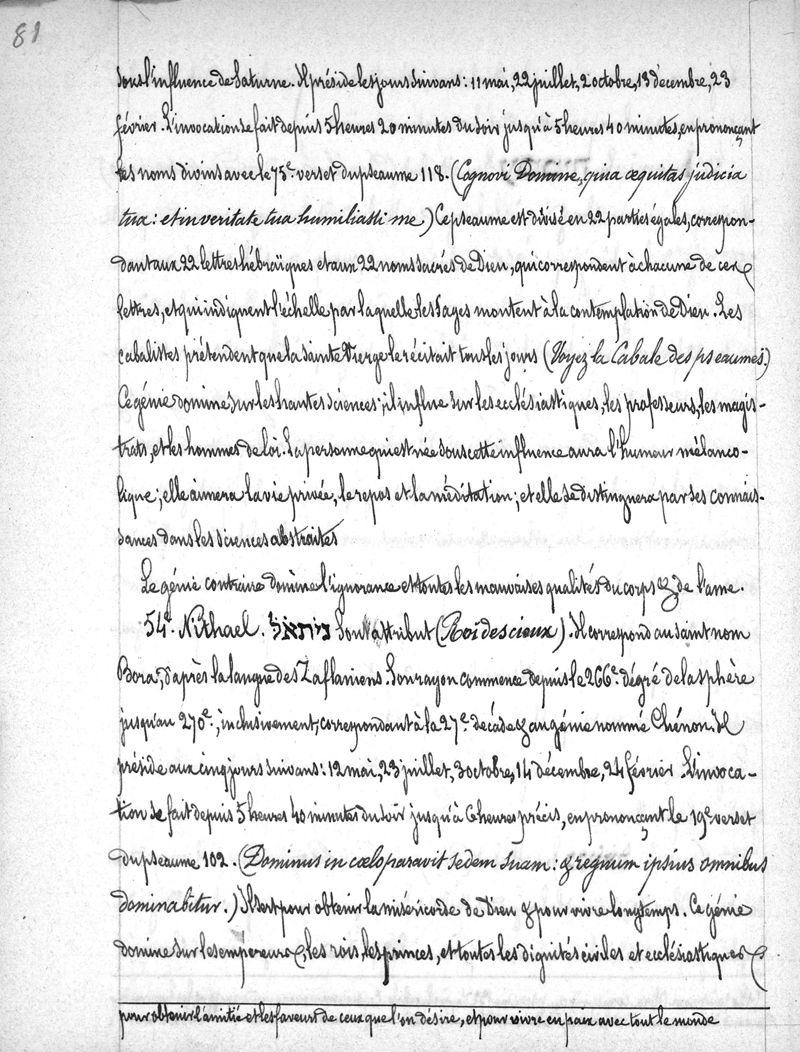 81
sous l'influence de Saturne. Il préside les jours suivans : 11 mai, 22 juillet, 2 octobre, 13 décembre, 23
février. L'invocation se fait depuis 5 heures 20 minutes du soir jusqu'à 5 heures 40 minutes, en prononçant
les noms divins avec le 75e. verset du pseaume 118. (Cognovi Domine, quia æquitas judicia
tua : et in veritate tua humiliasti me) Ce pseaume est divisé en 22 parties égales, correspon-
dant aux 22 lettres hébraïques et aux 22 noms sacrés de Dieu, qui correspondent à chacune de ces
lettres, et qui indiquent l'échelle par laquelle les Sages montent à la contemplation de Dieu. Les
cabalistes prétendent que la Sainte Vierge le récitait tous les jours (Voyez la Cabale des pseaumes.)
Ce génie domine sur les hautes sciences ; il influe sur les ecclésiastiques, les professeurs, les magis-
trats, et les hommes de loi. La personne qui est née sous cette influence aura l'humeur mélanco-
lique ; elle aimera la vie privée, le repos et la méditation ; et elle se distinguera par ses connais-
sances dans les sciences abstraites
Le génie contraire domine l'ignorance et toutes les mauvaises qualités du corps & de l'ame.
54e. Nithael. ניתאל Son attribut (Roi des cieux). Il correspond au saint nom
Bora, d'après la langue des Zaflaniens. Son rayon commence depuis le 266e. dégré de la sphère
jusqu'au 270e., inclusivement, correspondant à la 27e. décade & au génie nommé Chénon. Il
préside aux cinq jours suivans : 12 mai, 23 juillet, 3 octobre, 14 décembre, 24 février. L'invoca-
tion se fait depuis 5 heures 40 minutes du soir jusqu'à 6 heures précis, en prononçant le 19e. verset
du pseaume 102. (Dominus in cœlo paravit sedem suam : & regnum ipsius omnibus
dominabitur.) Il sert pour obtenir la miséricorde de Dieu & pour vivre longtemps. Ce génie
domine sur les empereurs, les rois, les princes, et toutes les dignités civiles et ecclésiastiques
pour obtenir l'amitié et les faveurs de ceux que l'on désire, et pour vivre en paix avec tout le monde